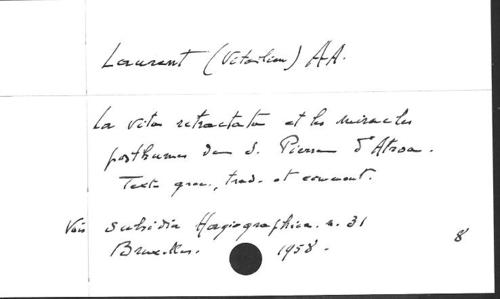 Laurent (Vitalien) AA.
La vita retractata et les miracles
posthumes de S. Pierre d'Atroa.
Texte grec, trad. et comment.
Voir Subsidia Hagiographica. n. 31
Bruxelles. 1958.
8